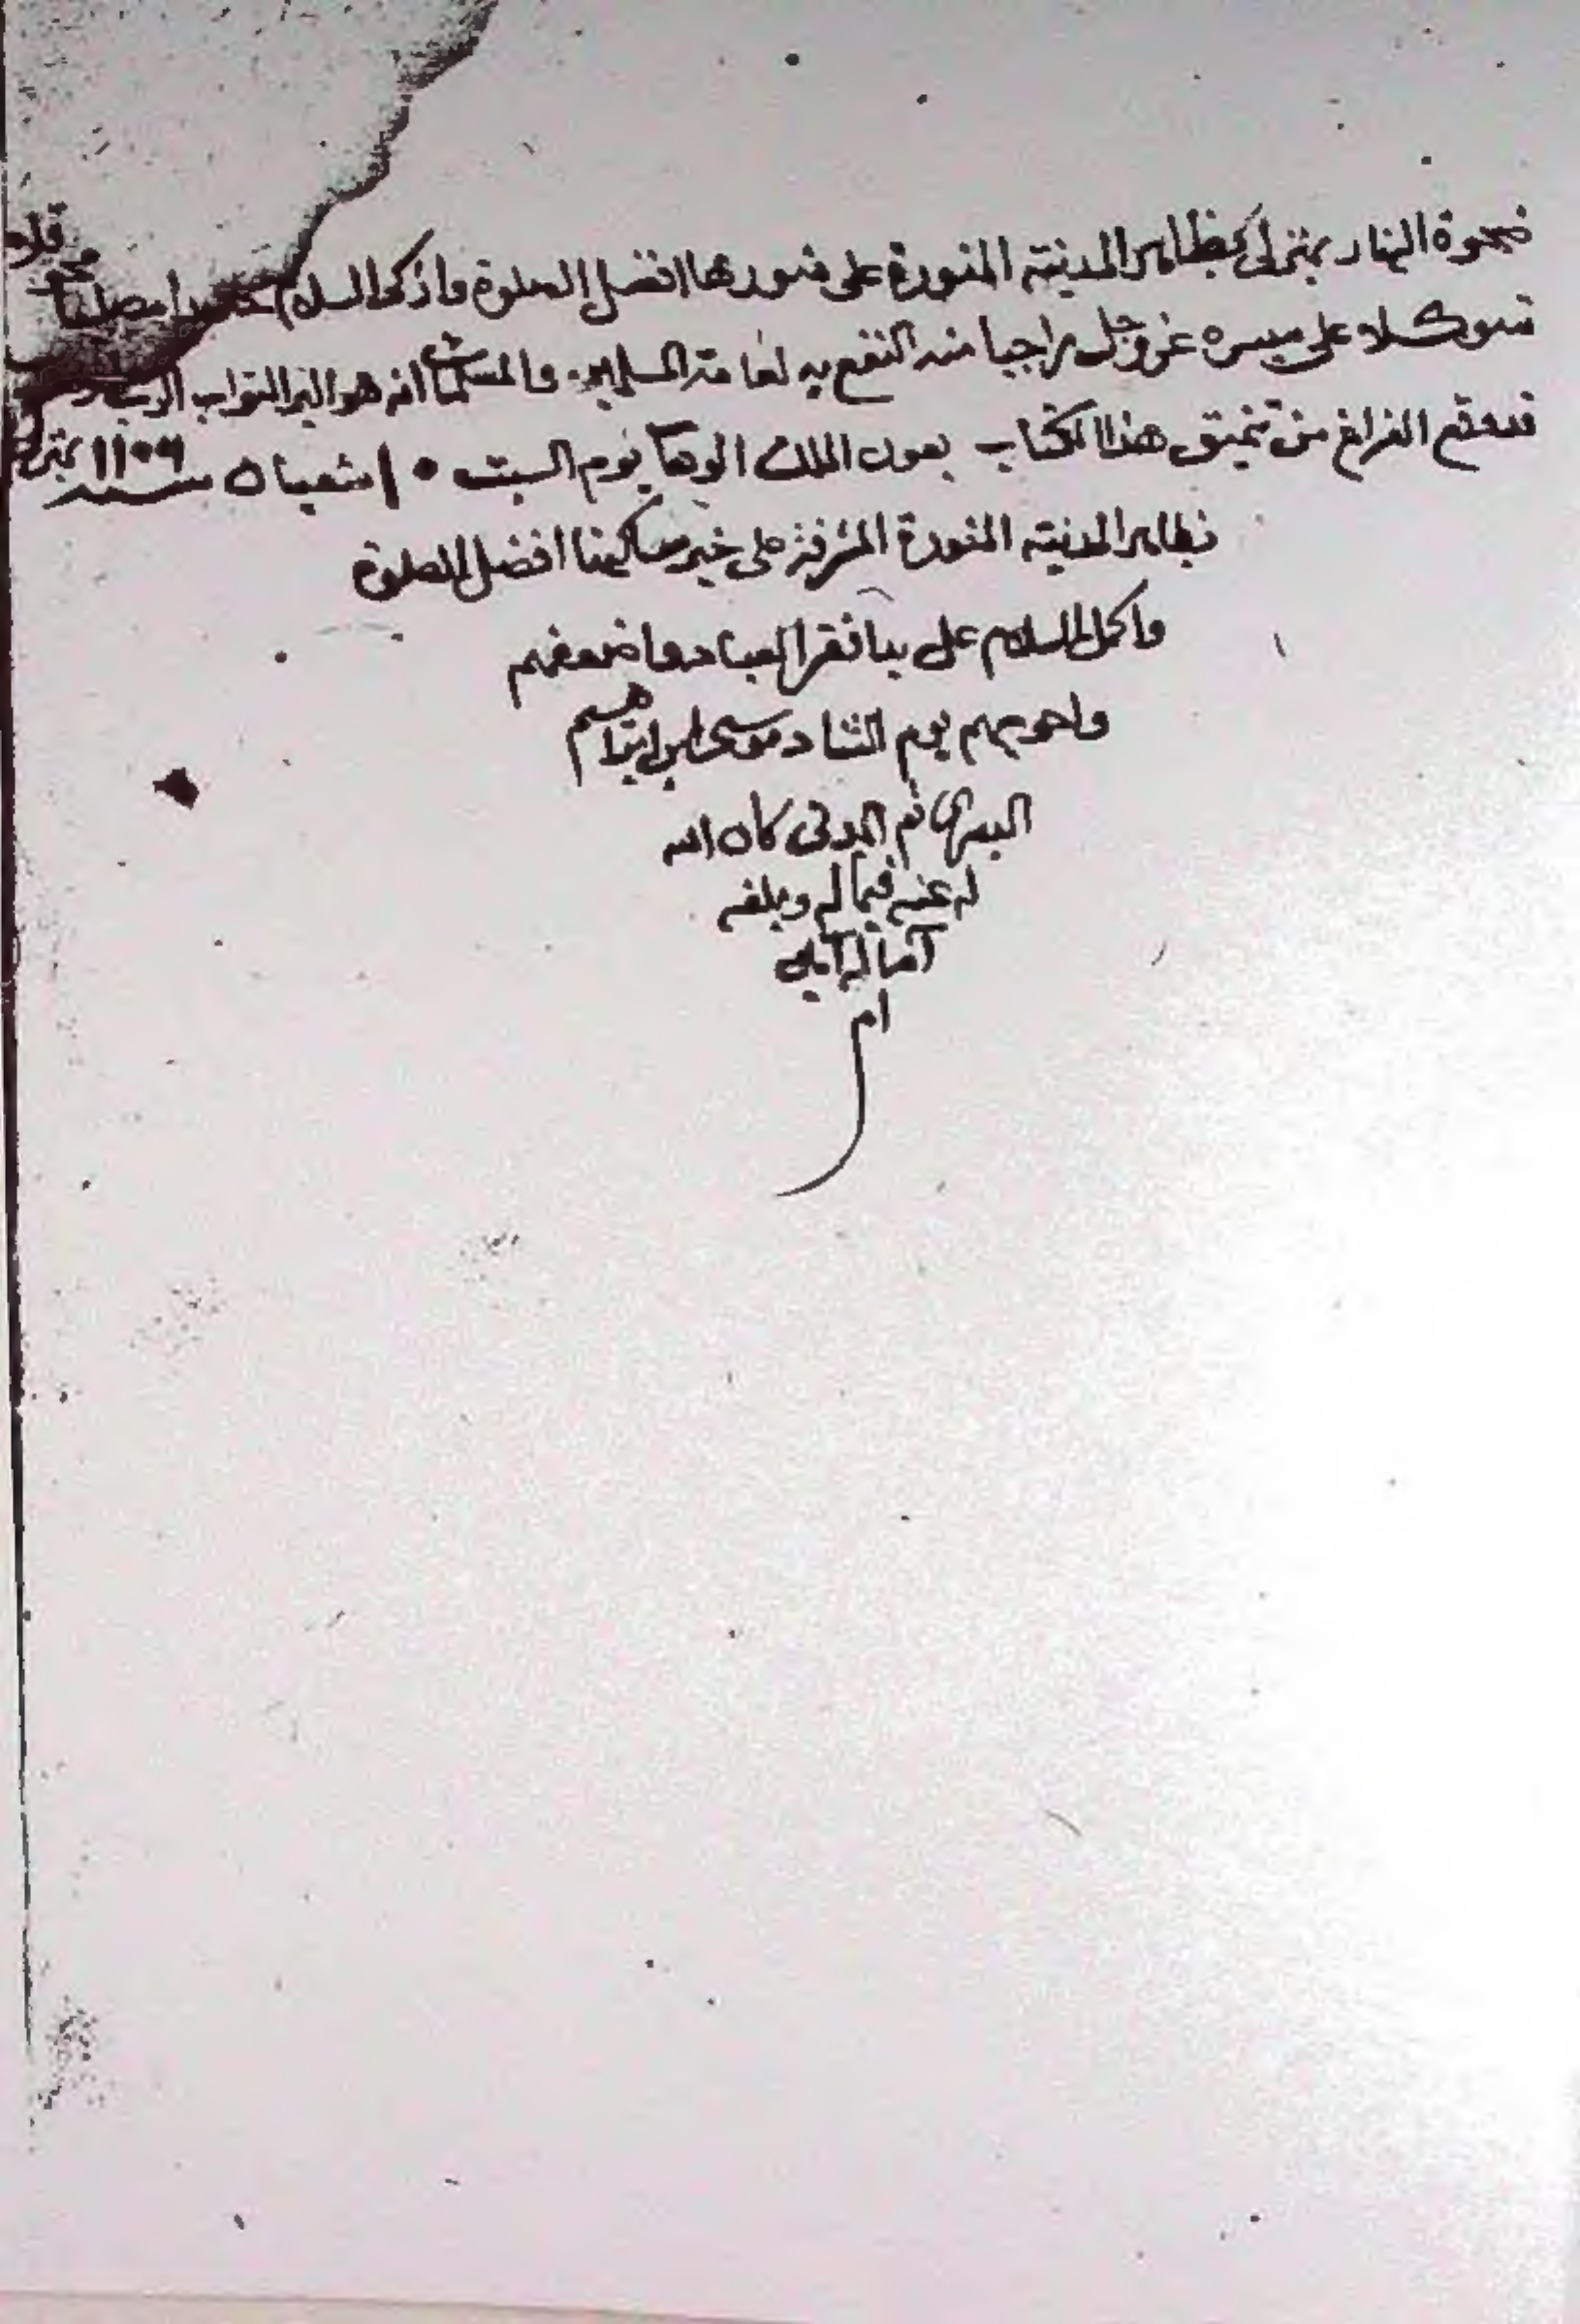 ضحوة النهار بمنزلى بظاهر المدينة المنورة على منورها افضل الصلوة وازكى السلام
متوكلا على ميسره عز وجل راجيا منه النفع به لعامة المسلمين والمسلمات انه هو البر التواب
قد وقع الفراغ من تنميق هذا الكتاب بعون الملك الوهاب يوم السبت ١٥ شعبان سنة ١١٥٦
بظاهر المدينة المنورة المشرفة على خير ساكينها افضل الصلوة
واكمل السلام على يد افقر العباد واضعفهم
واحوجهم يوم التناد موسى ابن ابراهيم
البصرى ثم المدنى كان الله
له عنه فيما له وبلغه
آماله آمين
ام